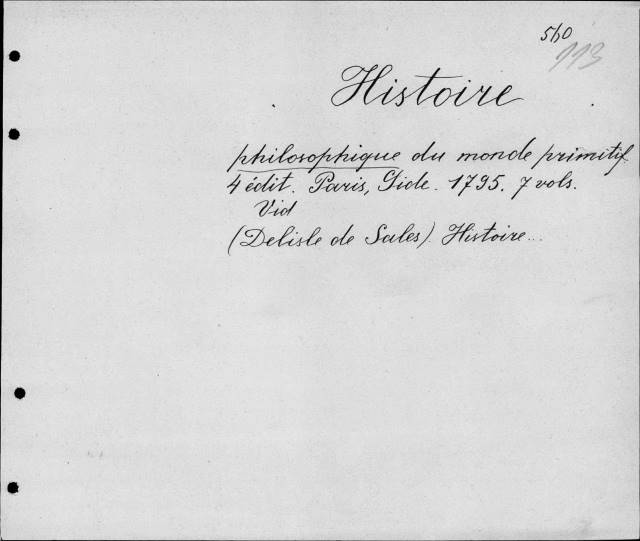 560
113
Histoire
philosophique du monde primitif
4 édit. Paris, Gide. 1795. 7 vols.
Vid
(Delisle de Sales) Histoire...